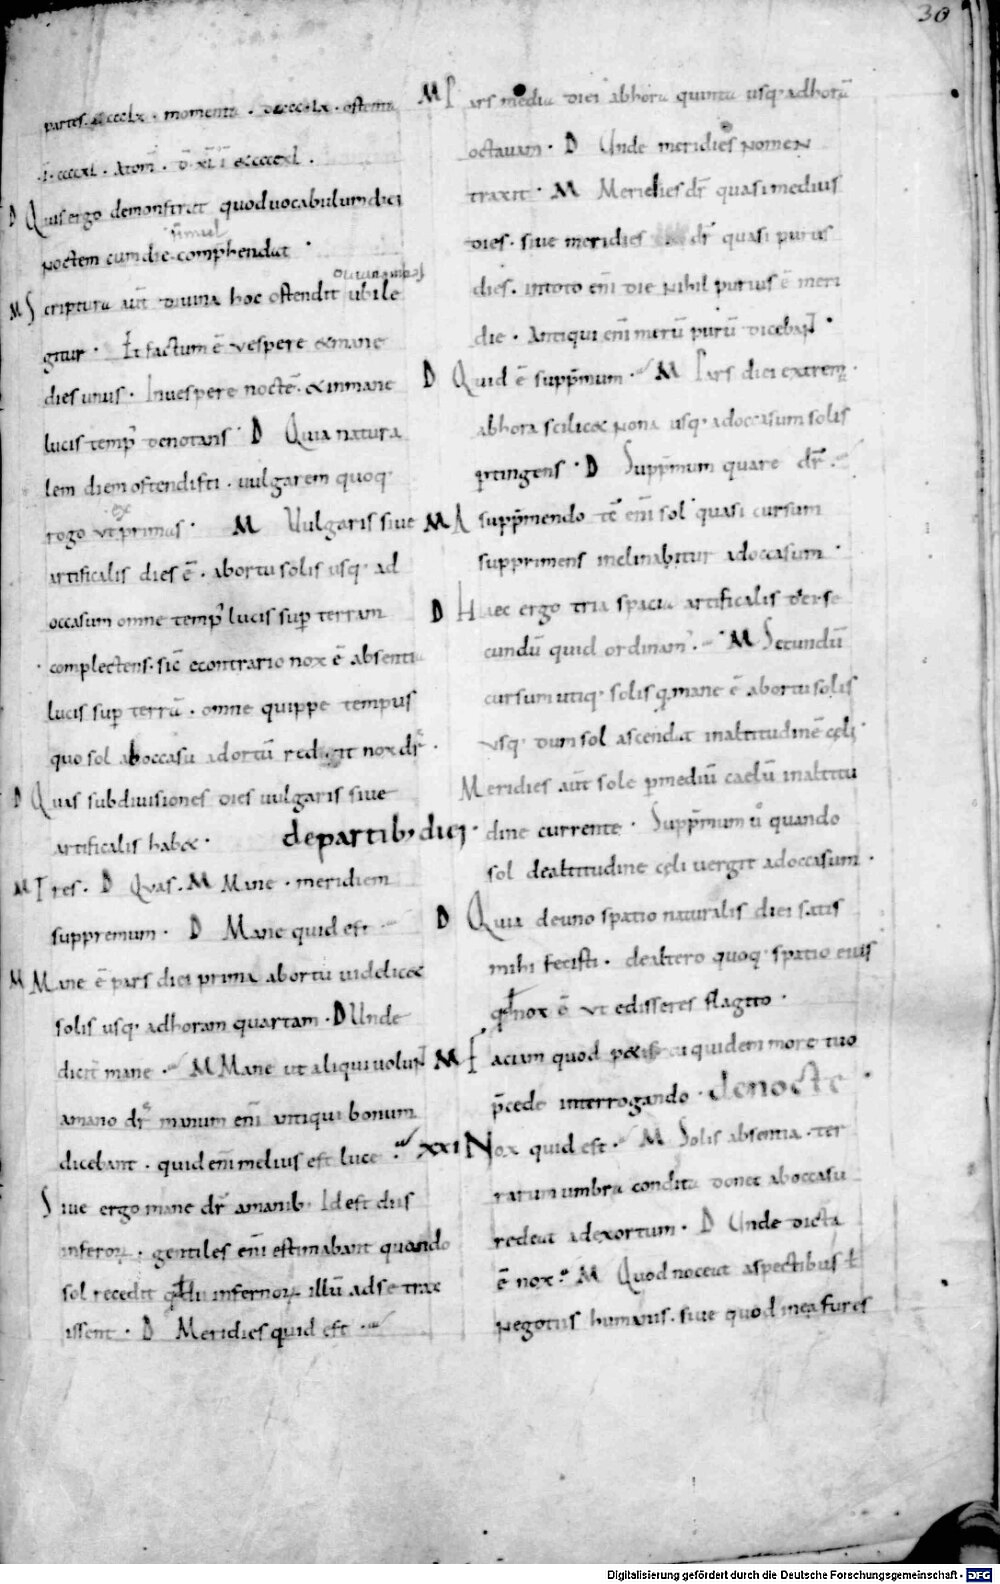 30
partes. ccccLx. momenta. dccccLx. ostenta
.i. ccccxl. Atom̄. d̄. xl ī ccccxl.
D Quis ergo demonstret quod uocabulum diei
simul
noctem cum die comp̄hendat.
M Scriptura aūt diuina hoc ostendit ubi le
gitur. Et factum ē vespere & mane
dies unus. In uespere noctē. & in mane
lucis temp' denotans D Quia natura
lem diem ostendisti. uulgarem quoq'
ex
rogo vt primas. M Uulgaris siue
artificalis dies ē. ab ortu solis usq' ad
occasum omne temp' lucis sup terram
complectens. sic̄ econtrario nox ē absentia
lucis sup terrā. omne quippe tempus
quo sol ab occasu ad ortū redigit nox dr̄.
D Quas subdiuisiones dies uulgaris siue
artificalis hab&. de partib; diei.
M Tres. D Quas. M Mane. meridiem
suppremum. D Mane quid est
M Mane ē pars diei prima ab ortu uidelic&
solis usq' ad horam quartam. D Unde
dicit̄ mane. M Mane ut aliqui uolun̄
a mano dr̄ manum enī antiqui bonum
dicebant. quid enī melius est luce.
Siue ergo mane dr̄ a manib; Id est diis
inferoꝝ. gentiles enī estimabant quando
sol recedit infernoꝝ illū ad se trax
issent. D Meridies quid est.
M Pars media diei ab hora quinta usq' ad horā
octauam. D Unde meridies nomen
traxit. M Meridies dr̄ quasi medius
dies. siue meridies dr̄ quasi purus
dies. in toto enī die nihil purius ē meri
die. Antiqui enī merū purū diceban̄.
D Quid ē supp̄mum. M Pars diei extrem̄.
ab hora scilic& nona usq' ad occasum solis
ꝑtingens. D Supp̄mum quare dr̄.
M A supp̄mendo tē enī sol quasi cursum
supprimens inclinabitur ad occasum.
D Haec ergo tria spacia artificalis diei se
cundū quid ordinant̄. M Secundū
cursum utiq' solis q mane ē ab ortu solis
vsq' dum sol ascendat in altitudinē cęli.
Meridies aūt sole p mediū caelū in altitu
dine currente. Supp̄mum ů quando
sol de altitudine cęli uergit ad occasum.
D Quia de uno spatio naturalis diei satis
mihi fecisti. de altero quoq' spatio eius
nox ē vt edisseres flagito.
M Faciam quod petisti quidem more tuo
p̄cede interrogando. de nocte.
xxi Nox quid est. M Solis absentia. ter
rarum umbra condita donec ab occasu
redeat ad exortum. D Unde dicta
ē nox. M Quod noceat aspectibus ł
negotiis humanis. siue quod in ea fures
Digitalisierung gefördert durch die Deutsche Forschungsgemeinschaft - DFG